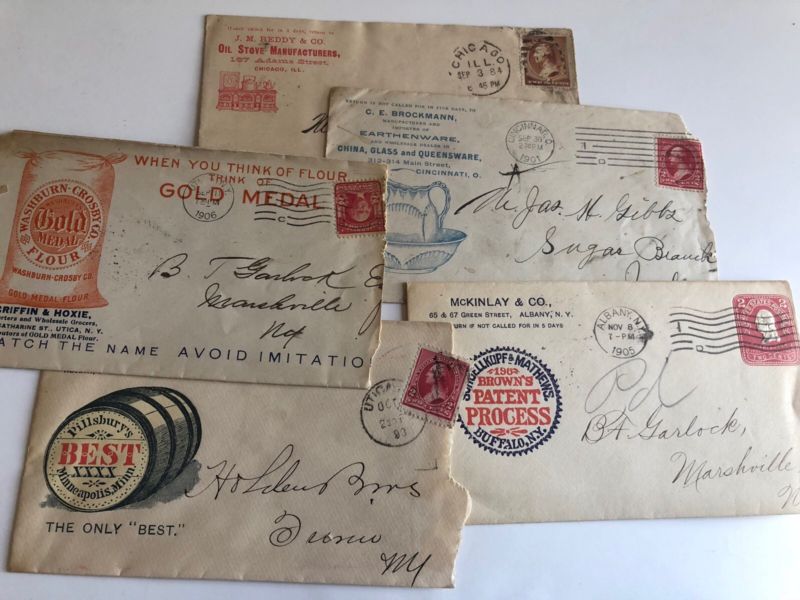 If not called for in 5 days, return to
J. M. REDDY & CO.
OIL STOVE MANUFACTURERS,
167 Adams Street,
CHICAGO, ILL.
CHICAGO
ILL.
SEP 3 84
6 45 PM
RETURN IF NOT CALLED FOR IN FIVE DAYS, TO
C. E. BROCKMANN,
MANUFACTURER AND
IMPORTER OF
EARTHENWARE,
AND WHOLESALE DEALER IN
CHINA, GLASS and QUEENSWARE,
312-314 Main Street,
CINCINNATI, O.
CINCINNATI, O.
SEP 30
2 30 PM
1901
1
D
Mr Jas H Gibbs
Sugar Branch
WHEN YOU THINK OF FLOUR
THINK OF
GOLD MEDAL
WASHBURN-CROSBY CO.
Gold
MEDAL
FLOUR
WASHBURN-CROSBY CO.
GOLD MEDAL FLOUR
1906
C
GRIFFIN & HOXIE,
rters and Wholesale Grocers,
CATHARINE ST., UTICA, N. Y.
butors of GOLD MEDAL Flour.
ATCH THE NAME AVOID IMITATIO
B. T Garlock
Marshville
NY
McKINLAY & CO.,
65 & 67 GREEN STREET, ALBANY, N. Y.
URN IF NOT CALLED FOR IN 5 DAYS
ALBANY, N.Y.
NOV 8
7-PM
1905
1
D
2 2
SCHOELLKOPF & MATHEWS.
196
BROWN'S
PATENT
PROCESS
BUFFALO, N.Y.
Pd
B T Garlock,
Marshville
Pillsbury's
BEST
XXXX
Minneapolis, Minn.
THE ONLY "BEST."
UTICA
93
Holden Bros
NY